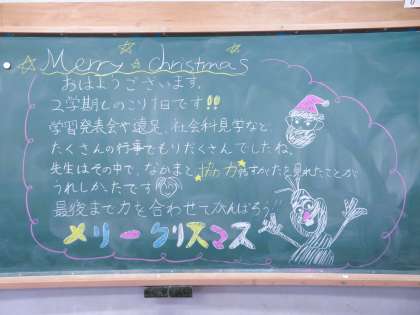 Merry christmas
おはようございます。
2学期ものこり1日です!!
学習発表会や遠足、社会科見学など、
たくさんの行事でもりだくさんでしたね。
先生はその中で、なかまと協力するすがたを見れたことが
うれしかったです
最後まで力を合わせてがんばろう!!
メリークリスマス